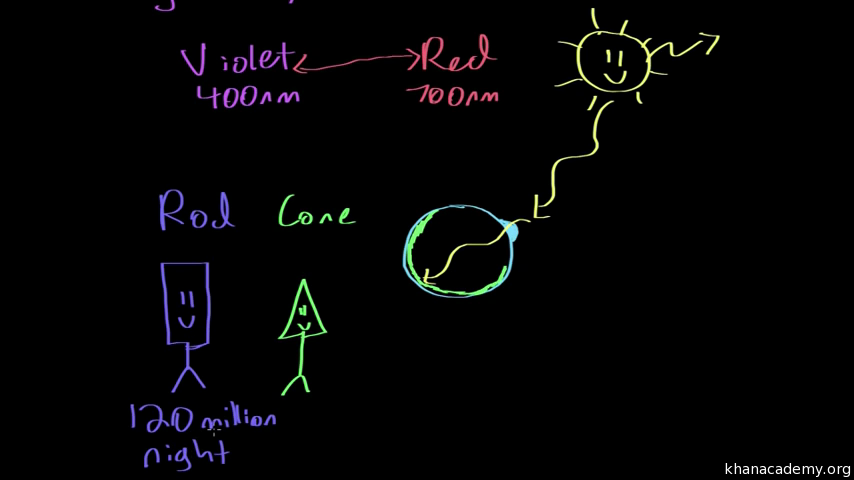 Violet Red
400nm 700nm
Rod Cone
120 million
night
khanacademy.org